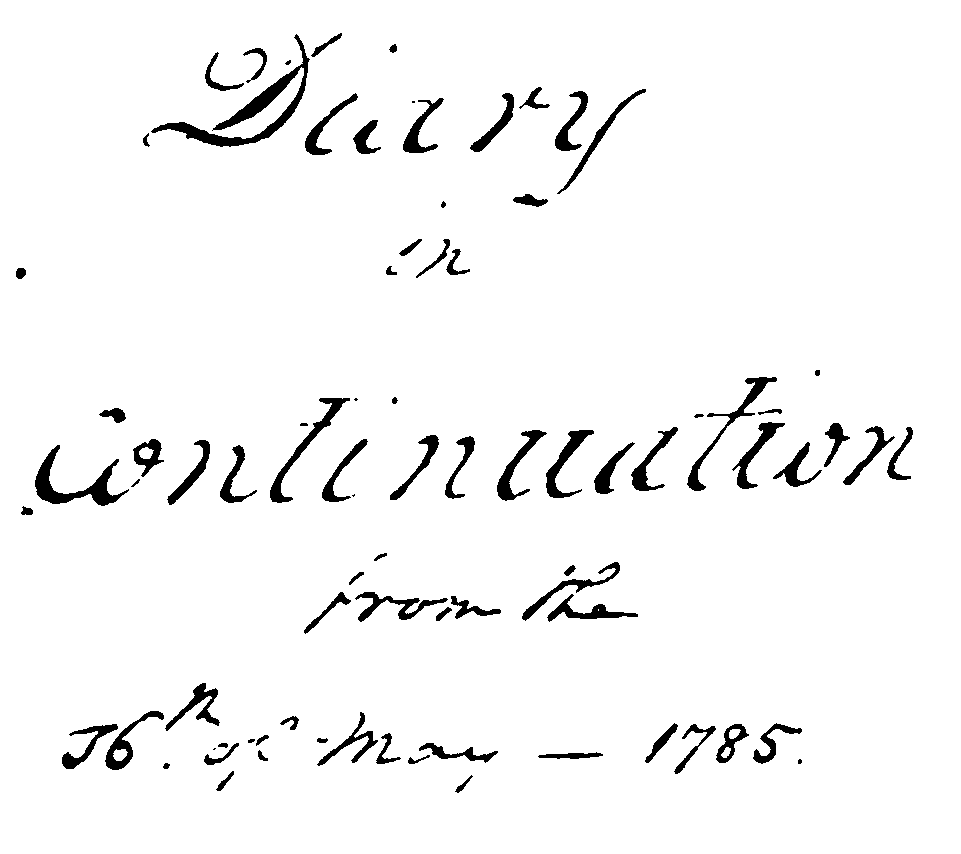 Diary
in
Continuation
from the
26.th of May — 1785.